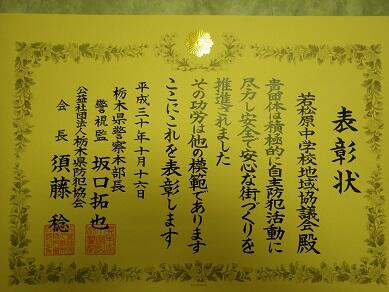 表彰状
若松原中学校地域協議会殿
貴団体は積極的に自主防犯活動に
尽力し安全で安心な街づくりを
推進されました
その功労は他の模範であります
ここにこれを表彰します
平成三十年十月十六日
栃木県警察本部長
警視監 坂口拓也
公益社団法人栃木県防犯協会
会長 須藤稔